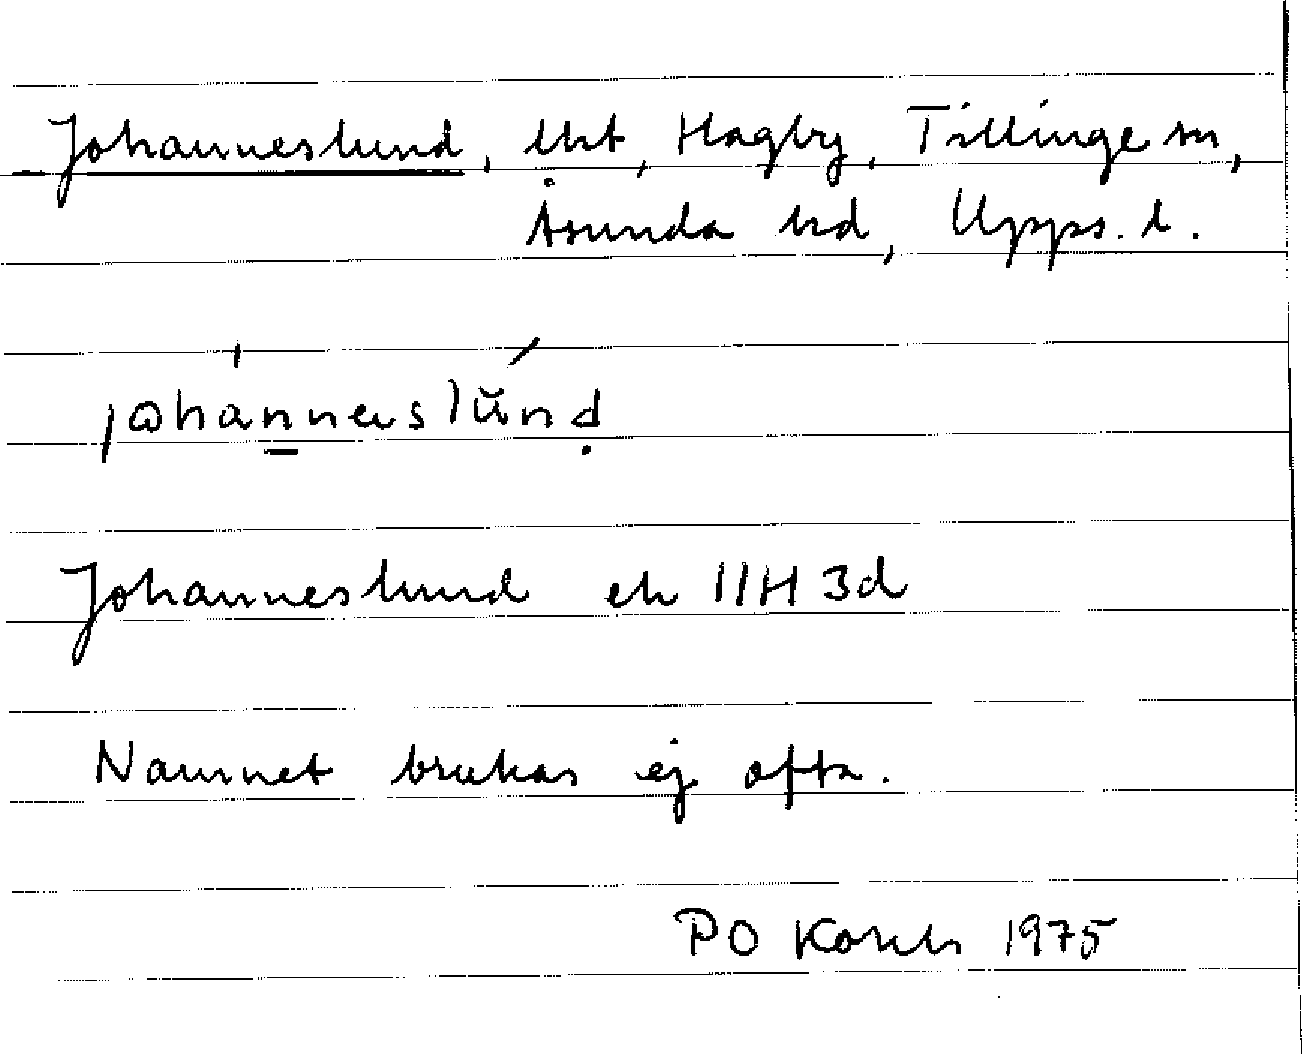 Johanneslund, lht, Hagby, Tillinge sn,
Åsunda hd, Upps. l.
johanneslund
Johanneslund ek 11H 3d
Namnet brukas ej ofta.
PO 1975